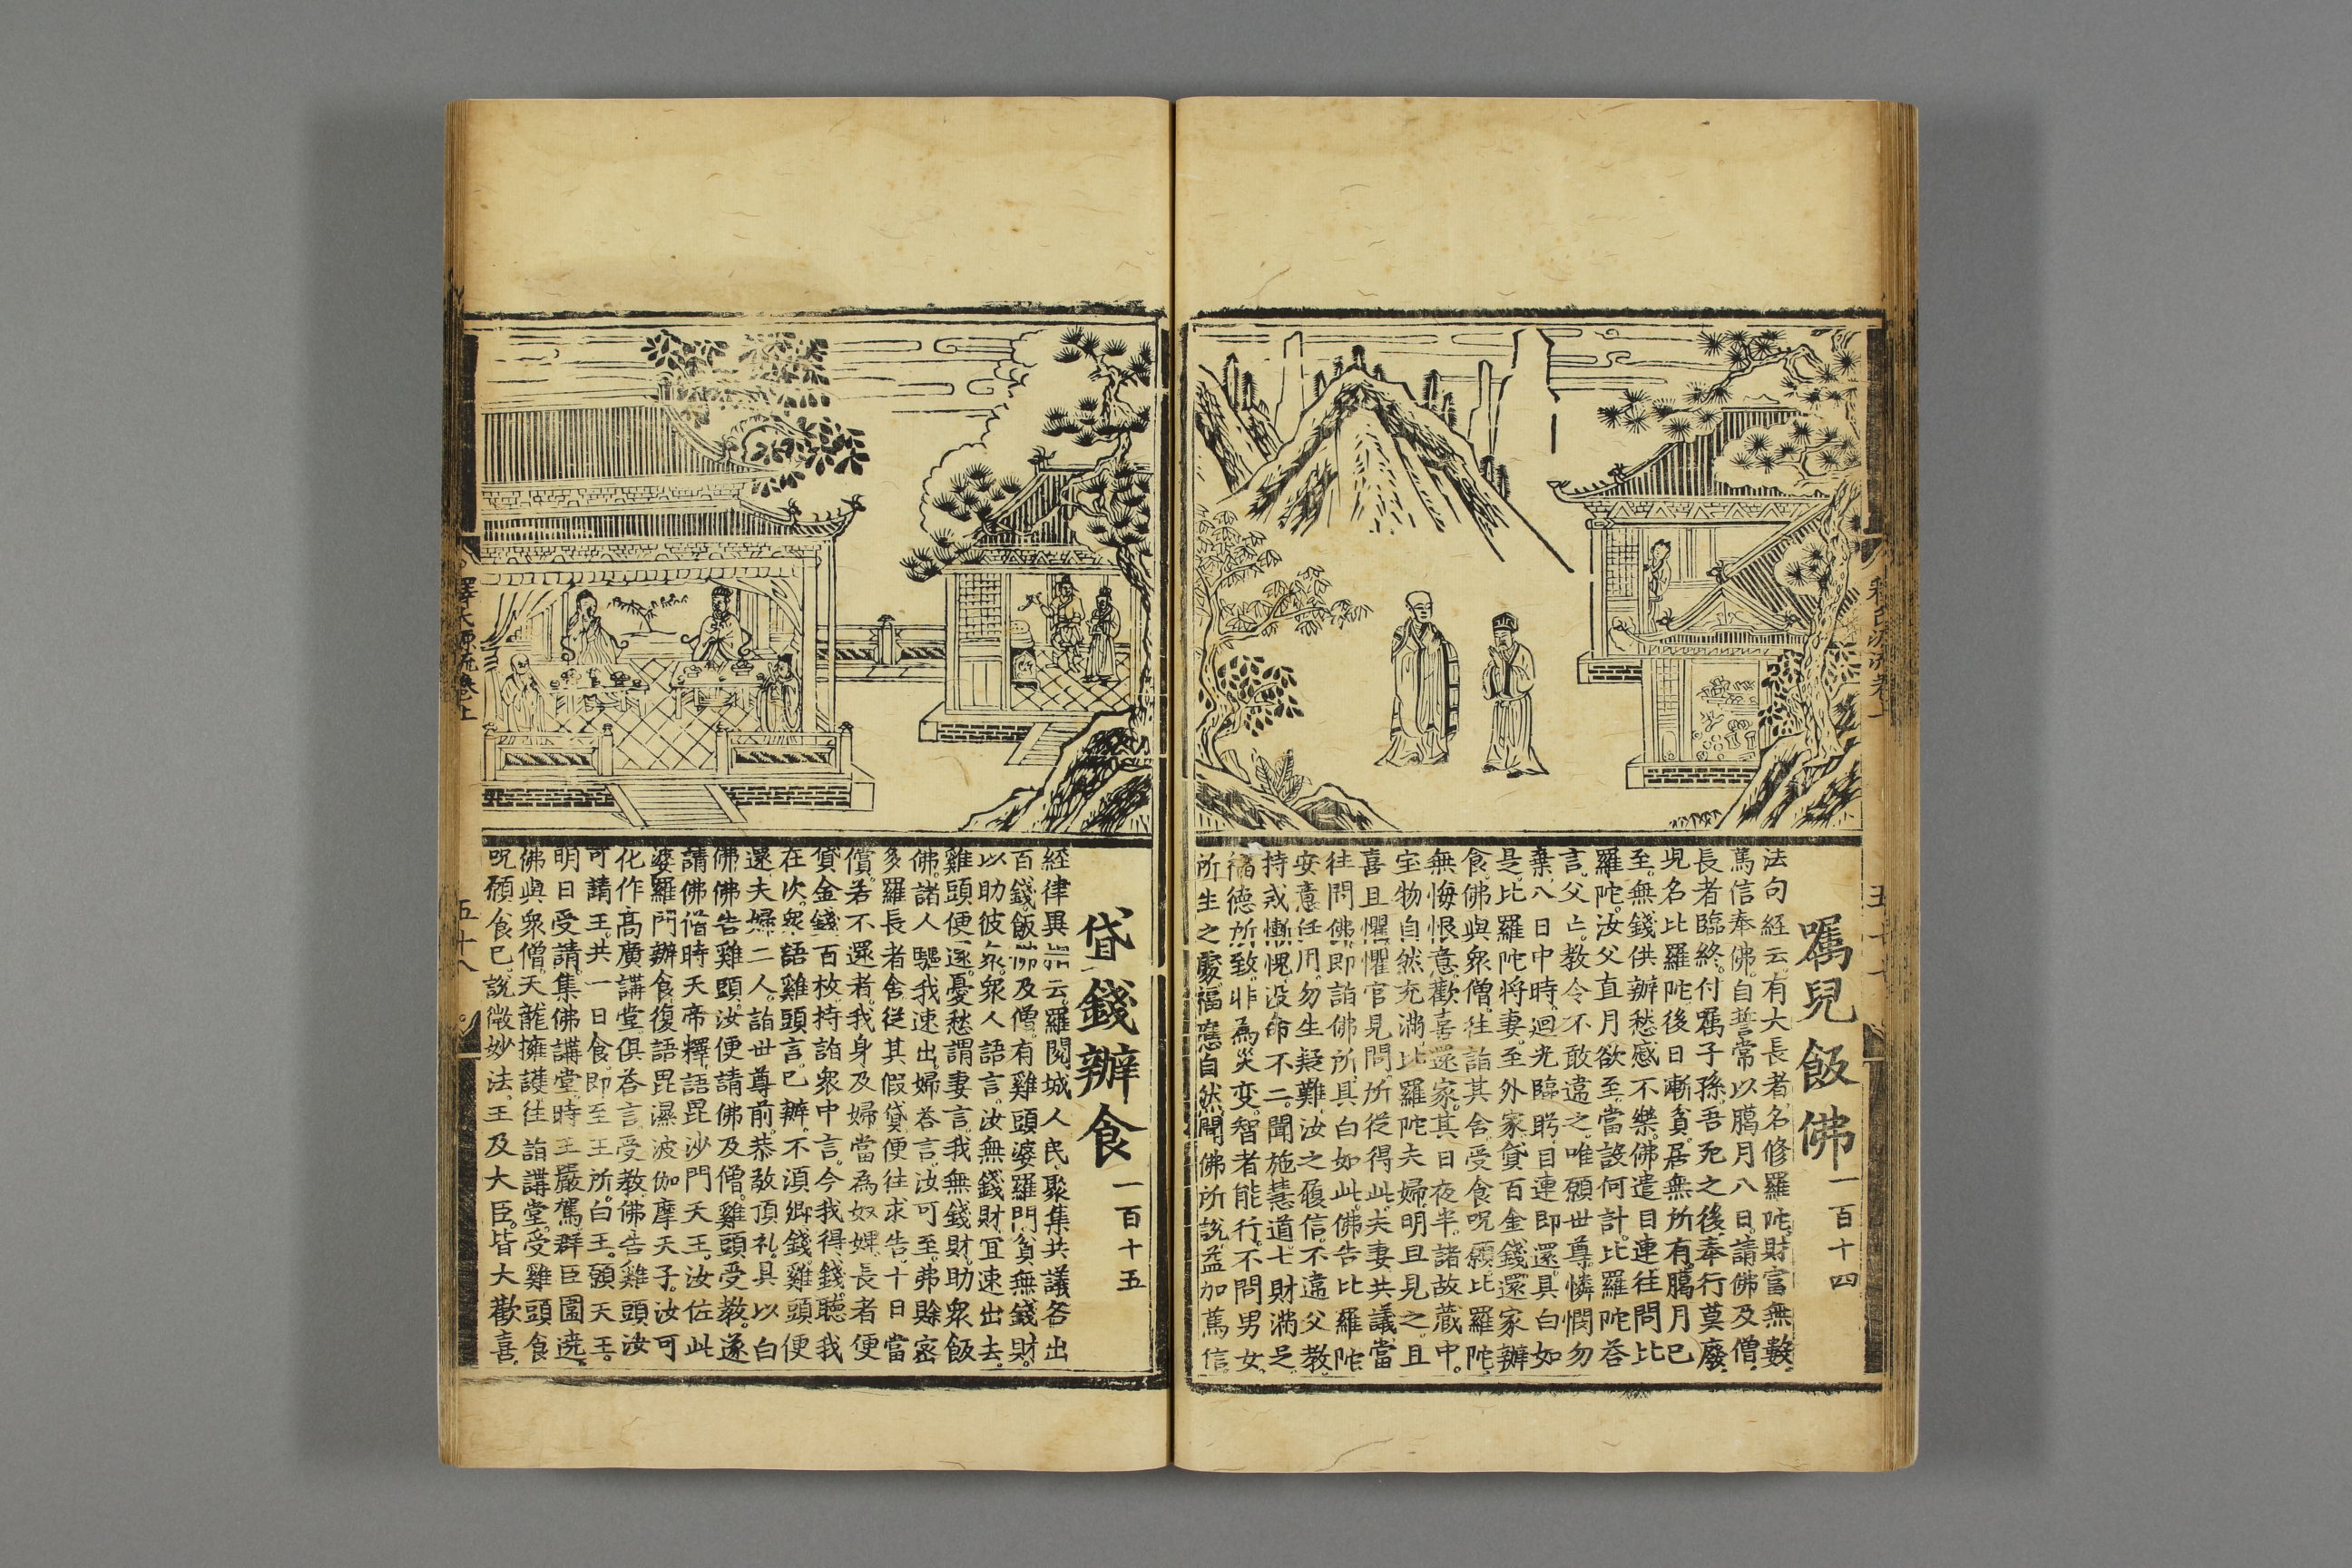 囑兒飯佛一百十四
法句經云。有大長者。名修羅陀。財富無數。
篤信奉佛。自誓常以臈月八日。請佛及僧。
長者臨終。付囑子孫。吾死之後。奉行莫廢。
児名比羅陀。後日漸貧。居無所有。臈月已
至。無錢供辦。愁慼不樂。佛遣目連。往問比
羅陀。汝父直月欲至。當設何計。比羅陀荅
言。父亡。教令不敢違之。唯願世尊。憐憫勿
棄。八日中時。迴光臨眄。目連即還。具白如
是。比羅陀。將妻至外家。貸百金錢。還家辦
食。佛與衆僧。往詣其舍。受食呪願。比羅陀
無悔恨意。歡喜還家。其日夜半。諸故藏中。
宝物自然充滿。比羅陀夫婦。明旦見之。且
喜且懼。懼官見問。所從得此。夫妻共議。當
往問佛。即詣佛所。具白如此。佛告比羅陀
安意任用。勿生疑難。汝之履信。不違父教。
持戒慚愧。没命不二。聞施慧道。七財滿足。
福德所致。非為災变。智者能行。不問男女。
所生之處。福應自然。聞佛所說。益加篤信。
貸錢辦食一百十五
經律異云。羅閱城人民。聚集共議。各出
百錢。飯佛及僧。有雞頭婆羅門。貧無錢財。
以助彼衆。衆人語言。汝無錢財。冝速出去。
雞頭便還。憂愁謂妻言。我無錢財。助衆飯
佛。諸人驅我速出。婦荅言。汝可至。弗賒密
多羅長者舍。從其假貸。便往求告。十日當
償。若不還者。我身及婦。當為奴婢。長者便
貸金錢百枚。持詣衆中言。今我得錢。聽我
在次。衆語雞頭言。已辦。不湏卿錢。雞頭便
還。夫婦二人。詣世尊前。恭敬頂礼。具以白
佛。佛告雞頭。汝便請佛及僧。雞頭受教。遂
請佛僧。時天帝釋。語毘沙門天王。汝佐此
婆羅門辦食。復語毘濕波伽摩天子。汝可
化作高廣講堂。俱荅言。受教。佛告雞頭。汝
可請王。共一日食。即至王所。白王。願天王。
明日受請。集佛講堂。時王嚴駕。群臣圍遶。
佛與衆僧。天龍擁護。往詣講堂。受雞頭食
呪願食已。說微妙法。王及大臣。皆大歡喜。
五十八